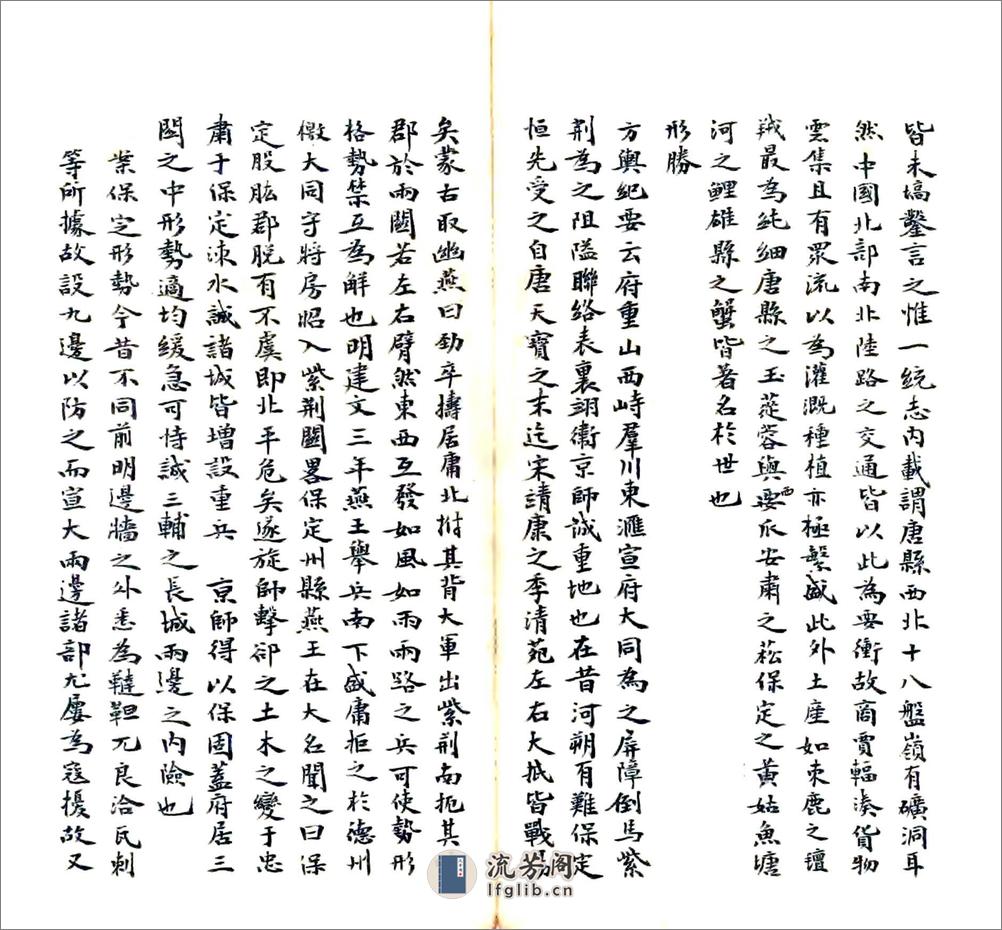 皆未塙鑿言之惟一統志內載謂唐縣西北十八盤嶺有礦洞耳
然中國北部南北陸路之交通皆以此為要衝故商賈輻湊貨物
雲集且有眾流以為灌溉種植亦極繁盛此外土產如束鹿之氊
羢最為純細唐縣之玉蓯蓉與要西瓜安肅之菘保定之黃姑魚塘
河之鯉雄縣之蟹皆著名於世也
形勝
方輿紀要云府重山西峙羣川東滙宣府大同為之屏障倒馬紫
荆為之阻隘聯絡表裏翊衞京師誠重地也在昔河朔有難保定
恒先受之自唐天寶之末迄宋靖康之季清苑左右大抵皆戰場
矣蒙古取幽燕曰勁卒擣居庸北拊其背大軍出紫荆南扼其
郡於兩關若左右臂然東西互發如風如雨兩路之兵可使勢形
格勢禁互為解也明建文三年燕王舉兵南下盛庸拒之於德州
檄大同守將房昭入紫荆關畧保定州縣燕王在大名聞之曰保
定股肱郡脫有不虞即北平危矣遂旋師擊卻之土木之變于忠
肅于保定涞水誠諸城皆增設重兵 京師得以保固蓋府居三
關之中形勢適均緩急可恃誠三輔之長城兩邊之內險也
業保定形勢今昔不同前明邊牆之外悉為韃靼兀良洽氏刺
等所據故設九邊以防之而宣大兩邊諸部尤屢為寇擾故又
流芳阁
lfglib.cn